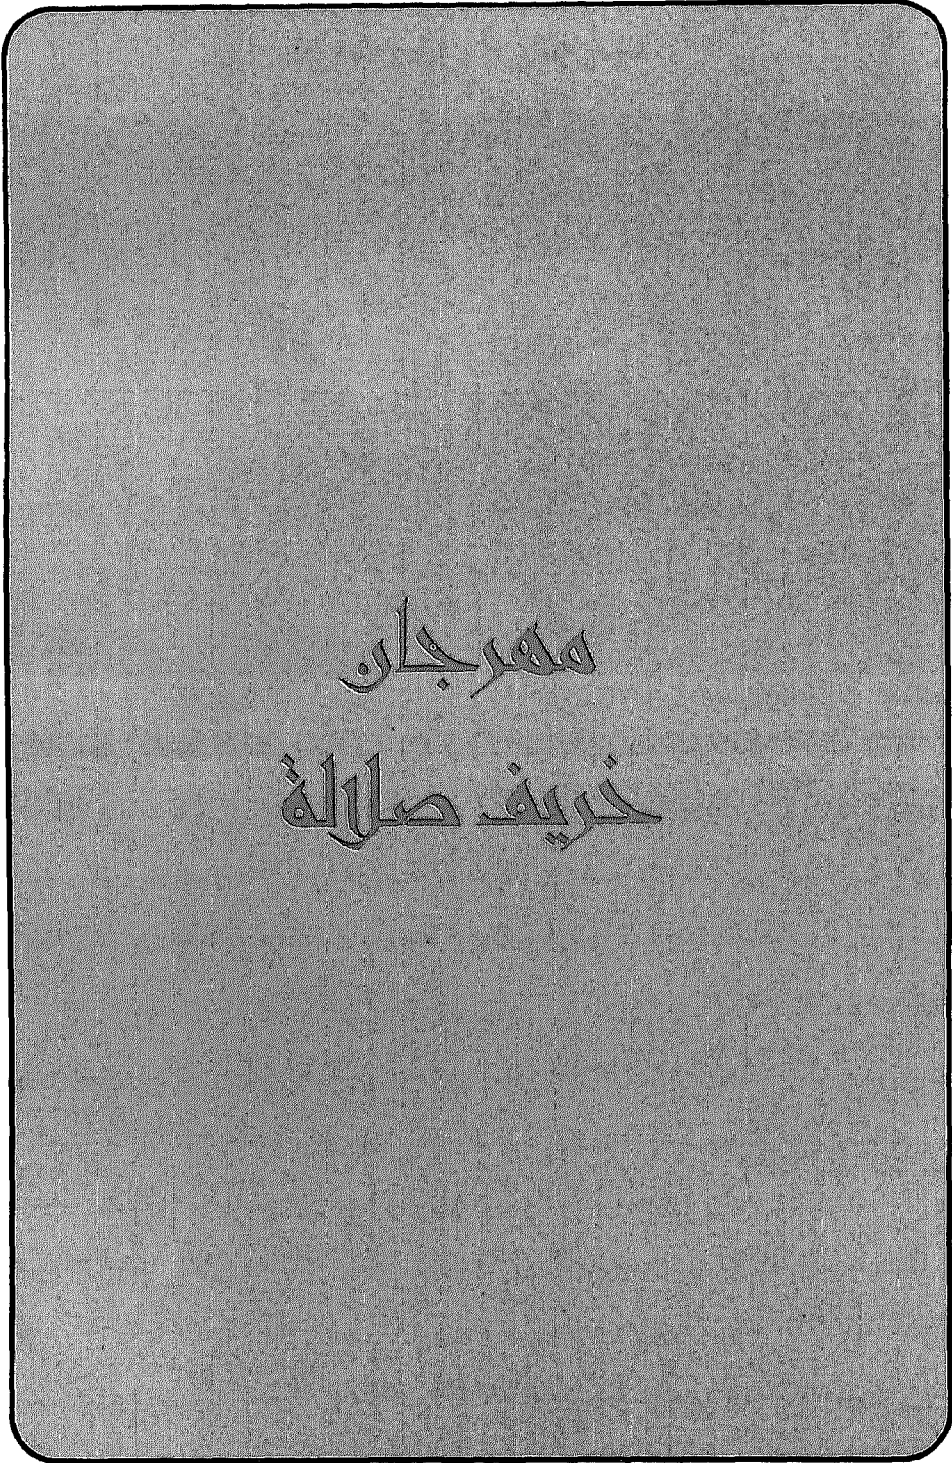 مهرجان
خريف صلالة